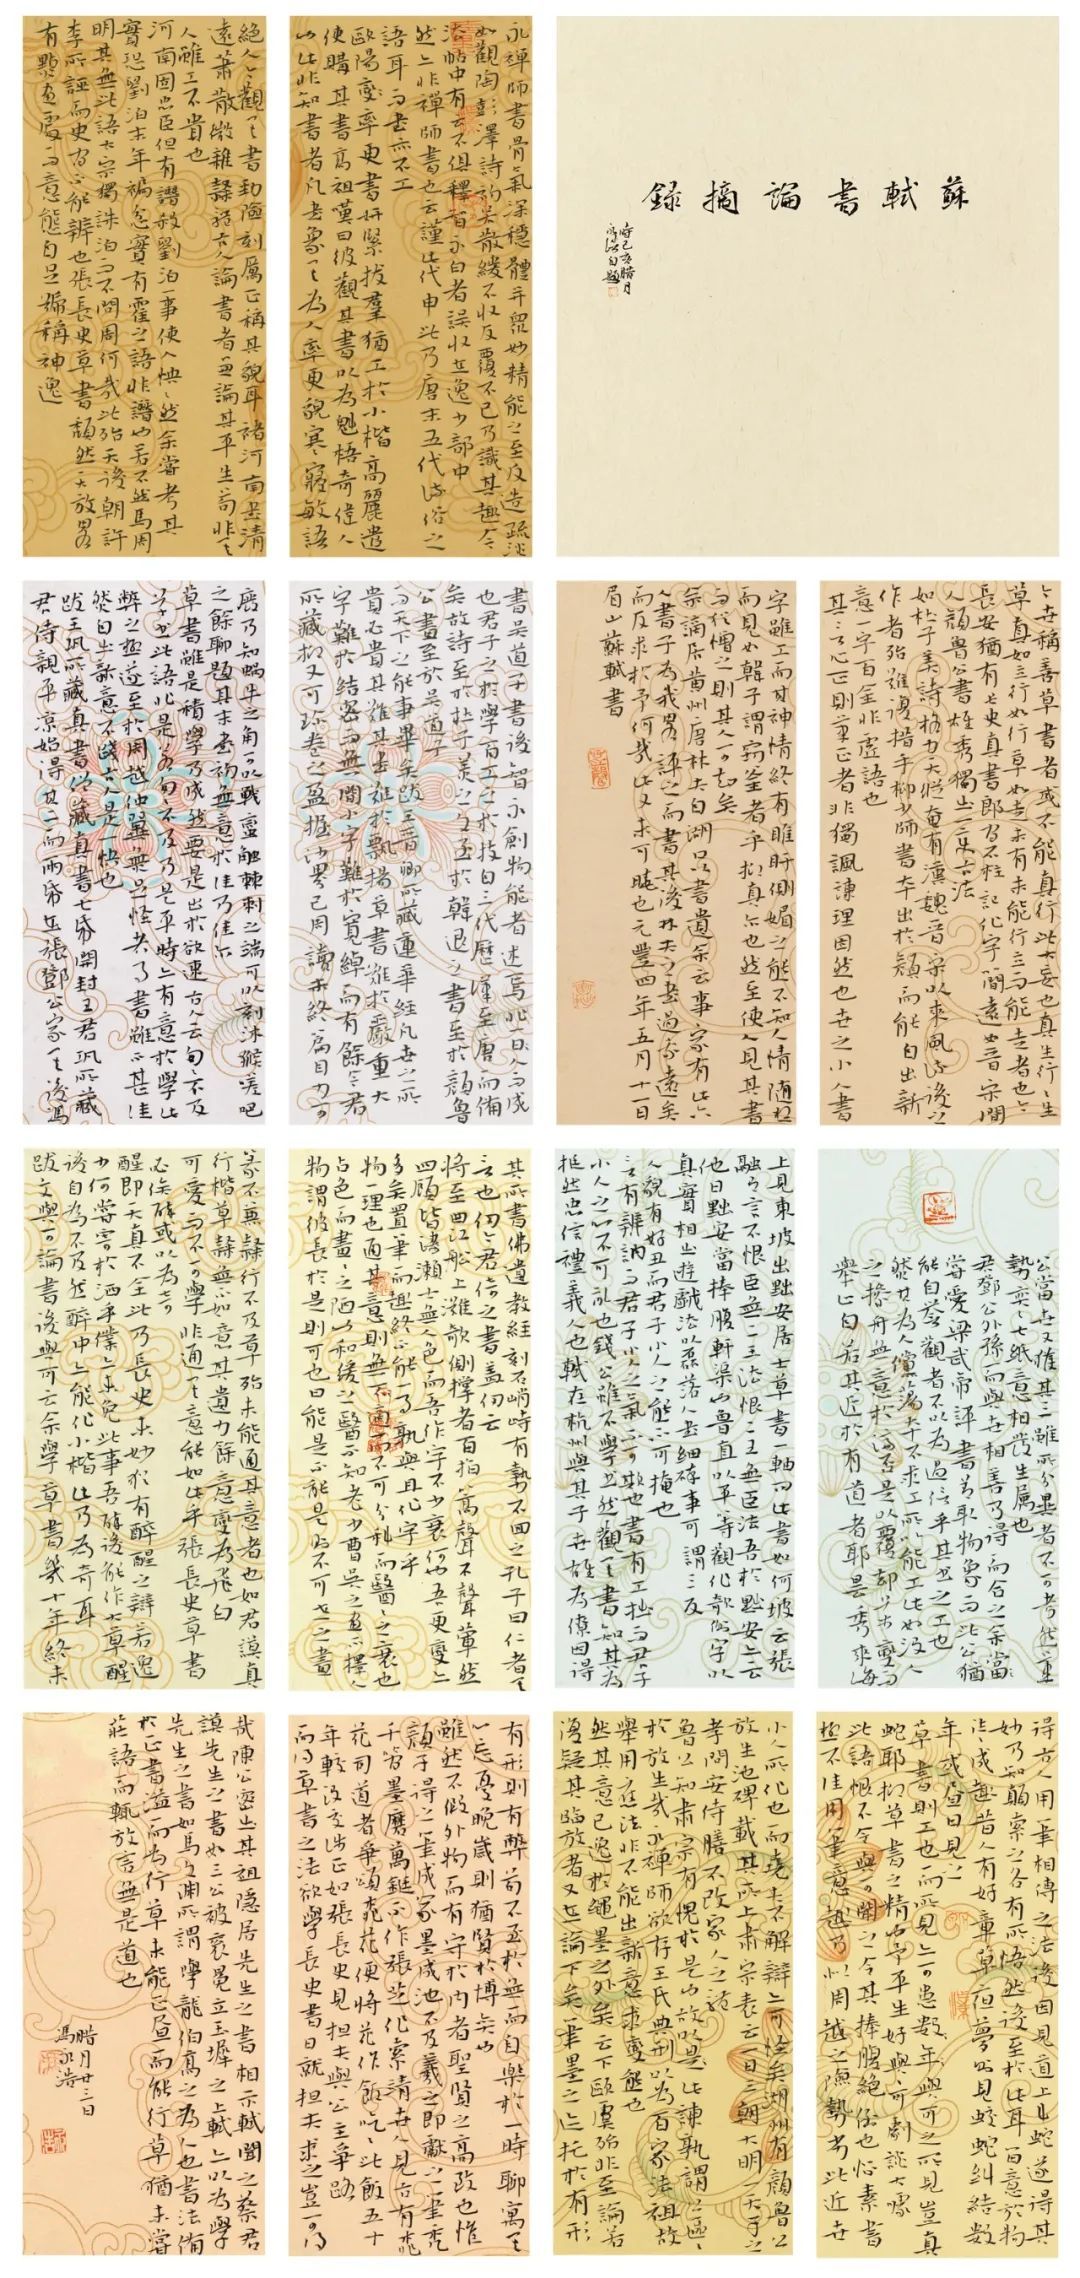 蘇軾書論摘錄
時己亥臘月
永浩自題
永禪師書骨氣深穩體并眾妙精能之至反造疏淡
如觀陶彭澤詩初若散緩不收反覆不已乃識其趣今
法帖中有云不俱釋智永白者誤收在逸少部中
然亦非禪師書也云謹此代申此乃唐末五代流俗之
語耳而書亦不工
歐陽率更書妍緊拔羣猶工於小楷高麗遣
使購其書高祖嘆曰彼觀其書以為魁梧奇偉人
也此非知書者凡書象其為人率更貌寒寢敏語
絕人今觀其書勁險刻厲正稱其貌耳褚河南書清
遠蕭散微雜隸體古人論書者兼論其平生苟非其
人雖工不貴也
河南固忠臣但有譖殺劉洎一事使人怏怏然余嘗考其
實恐劉洎末年褊忿實有霍之語非譖也若不然馬周
明其無此語太宗獨誅洎而不問周何哉此殆天後朝許
李所誣而史官不能辨也張長史草書頹然天放略
有點畫處而意態自足號稱神逸
今世稱善草書者或不能真行此大妄也真生行行生
草真如立行如行草如走未有未能行立而能走者也今
長安猶有長史真書郎官石柱記作字簡遠如晉宋間
人顏魯公書雄秀獨出一變古法
如杜子美詩格力天縱奄有漢魏晉宋以來風流後之
作者殆難復措手柳少師書本出於顏而能自出新
意一字百金非虛語也
其言心正則筆正者非獨諷諫理固然也世之小人書
字雖工而其神情終有睢盱側媚之態不知人情隨想
而見如韓子謂竊斧者乎抑真爾也然至使人見其書
而猶憎之則其人可知矣
余謫居黃州唐林夫自湖口以書遺余云吾家有此六
人書子為我略評之而書其後林夫之書過我遠矣
而反求於予何哉此又未可曉也元豐四年五月十一日
眉山蘇軾書
書吳道子書後智者創物能者述焉非一日而成
也君子之於學百工之於技自三代歷漢至唐而備
矣故詩至於杜子美文至於韓退之書至於顏魯
公畫至於吳道子
而天下之能事畢矣跋王晉卿所藏蓮華經凡世之所
貴必貴其難真書難於飄揚草書難於嚴重大
字難於結密而無間小字難於寬綽而有餘今君
所藏抑又可珍卷之盈握沙界已周讀未終篇目力可
廢乃知蝸牛之角可以戰蠻觸棘刺之端可以刻沐猴嗟嘆
之餘聊題其末書初無意於佳乃佳尔
草書雖是積學乃成然要是出於欲速古人云匆匆不及
草書此語非是若匆匆不及乃是平時亦有意於學此
弊之極遂至於周越仲翼無足怪者吾書雖不甚佳
然自出新意不踐古人是一快也
跋王鞏所藏真書僧藏真書七紙開封王君鞏所藏
君侍親平涼始得其二而兩紙在張鄧公家其後馮
公當世又獲其三雖所分異者不可考然筆
勢奕奕七紙意相發生屬也
君鄧公外孫而與當世相善乃得而合之余嘗
嘗愛梁武帝評書善取物象而此公猶
能自譽觀者不以為過信乎其書之工也
然其為人儻蕩本不求工所以能工此如沒人
之操舟無意於濟否是以覆却萬變而
舉止自若其近於有道者耶曇秀來海
上見東坡出黔安居士草書一軸問此書如何坡云張
融有言不恨臣無二王法恨二王無臣法吾於黔安亦云
他日黔安當捧腹軒渠也魯直以平等觀作欹側字以
真實相出遊戲法以磊落人書細碎事可謂三反
人貌有好丑而君子小人之態不可掩也
言有辨訥而君子小人之氣不可欺也書有工拙而君子
小人之心不可亂也錢公雖不學書然觀其書知其為
挺然忠信禮義人也軾在杭州與其子世雄為僚因得
其所書佛遺教經刻石峭峙有勢不回之孔子曰仁者其
言也訒今君倚之書蓋訒云
將至曲江船上灘欹側撐者百指篙聲石聲犖然
四顧皆濤瀨士無人色而吾作字不少衰何也吾更變亦
多矣置筆而起終不能一事孰與且作字乎
物一理也通其意則無適而不可分科而醫醫之衰也
占色而畫畫之陋也和緩之醫不知老少曹吳之畫不擇人
物謂彼長於是則可也曰能是不能是則不可世之書
篆不兼隸行不及草殆未能通其意者也如君謨真
行楷草隸無不如意其遺力餘意變為飛白
可愛而不可學非通其意能如此乎張長史草書
必俟醉或以為奇
醒即天真不全此乃長史未妙猶有醉醒之辯若逸
少何嘗寄於酒乎僕亦未免此事吾醉後能作大草醒
後自為不及然醉中亦能作小楷此乃為奇耳
跋文與可論書後與可云余學草書幾十年終未
得古人用筆相傳之法後因見道上鬥蛇遂得其
妙乃知顛素之各有所悟然後至於此耳留意於物
往往成趣昔人有好草草夜夢則見蛟蛇糾結數
年或晝日見之
草書則工也而所見亦可患與可之所見豈真
蛇耶抑草書之精也予平生好與與可劇談大噱
此語恨不令與可聞之令其捧腹絕倒也懷素書
極不佳用筆意趣乃似周越之險劣此近世
小人所作也而堯夫不解辯亦可怪矣湖州有顏魯公
放生池碑載其所上肅宗表云一日三朝大明天子之
孝問安侍膳不改家人之禮
魯公知肅宗有愧於是也故以是此諫孰謂公區區
於放生哉永禪師欲存王氏典刑以為百家法祖故
舉用舊法非不能出新意求變態也
然其意已逸於繩墨之外矣云下歐虞殆非至論若
復疑其臨放者又在論下矣筆墨之跡托於有形
有形則有弊苟不至於無而自樂於一時聊寓其
心忘憂晚歲則猶賢於博奕也
雖然不假外物而有守於內者聖賢之高致也惟
顏子得之筆成冢墨成池不及羲之即獻之筆禿
千管墨磨萬鋌不作張芝作索靖世人見古有桃
花司道者爭頌桃花便將花作飯吃吃此飯五十
年轉沒交涉正如張長史見担夫與公主爭路
而得草書之法欲學長史書日就担夫求之豈可得
哉陳公密出其祖隱居先生之書相示軾聞之蔡君
謨先生之書如三公被袞冕立玉墀之上軾亦以為學
先生之書如馬文淵所謂學龍伯高之為人也書法備
於正書溢而為行草未能正書而能行草猶未嘗
莊語而輒放言無是道也
臘月廿三日
馮永浩